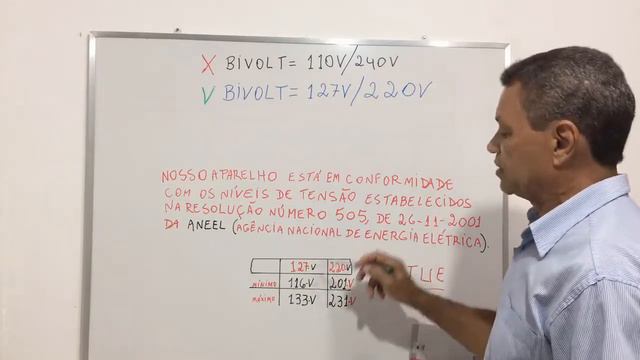 X BIVOLT= 110V/240V
V BIVOLT= 127V/220V
NOSSO APARELHO ESTÁ EM CONFORMIDADE
COM OS NÍVEIS DE TENSÃO ESTABELECIDOS
NA RESOLUÇÃO NÚMERO 505, DE 26-11-2001
DA ANEEL (AGÊNCIA NACIONAL DE ENERGIA ELÉTRICA).
127V 220V
MÍNIMO 116V 201V
MÁXIMO 133V 231V